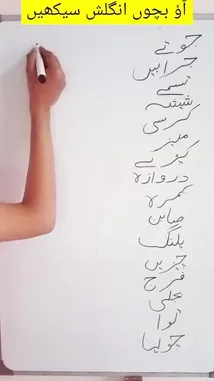 آؤ بچوں انگلش سیکھیں
جوتے
جرابیں
تسمے
شیشہ
کرسی
میز
کپڑے
دروازہ
کمرہ
صابن
پلنگ
چیزیں
فرج
بجلی
توا
چولہا